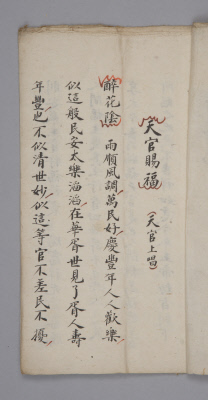 天官賜福 (天官上唱)
醉花陰 雨順風調萬民好慶豐年人人歡樂
似這般民安太樂滔滔在華胥世見了胥人壽
年豐也不似清世妙似這等官不差民不擾